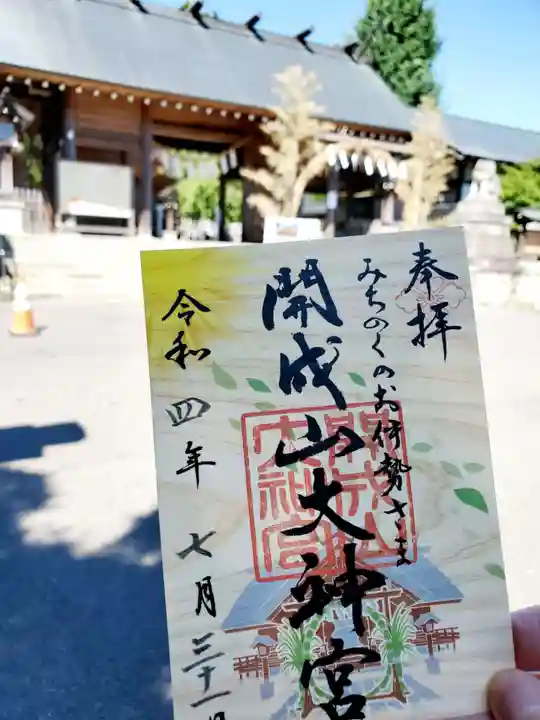 奉拝
みちのくのお伊勢さま
開成山大神宮
令和四年七月三十一日